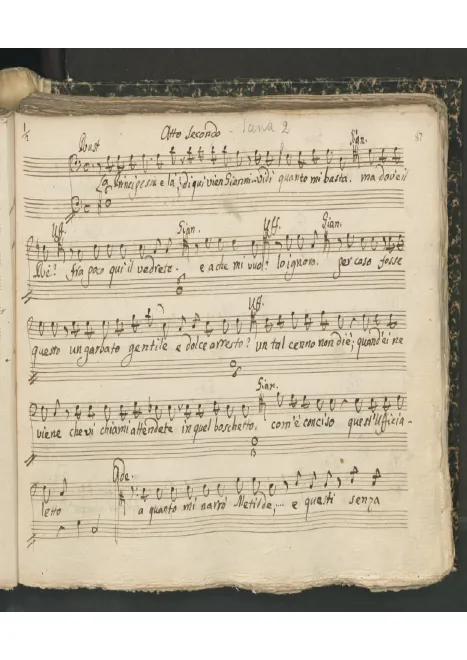 1/2 Atto Secondo - Scena 2 87
Gian.
La Principessa e la; di qui vien Gianni. vidi quanto mi basta. ma dov'è il
Uff. Gian. Uff. Gian.
Rè? frà poco qui il vedrete. e a che mi vuol? lo ignoro. per caso fosse
Uff.
questo un garbato gentile e dolce arresto? un tal cenno non diè; quand'ei ne
Gian.
viene che vi chiami attendete in quel boschetto. com'è conciso quest'Uffizia-
Ade.
letto a quanto mi narrò Netilde,... e questi senza